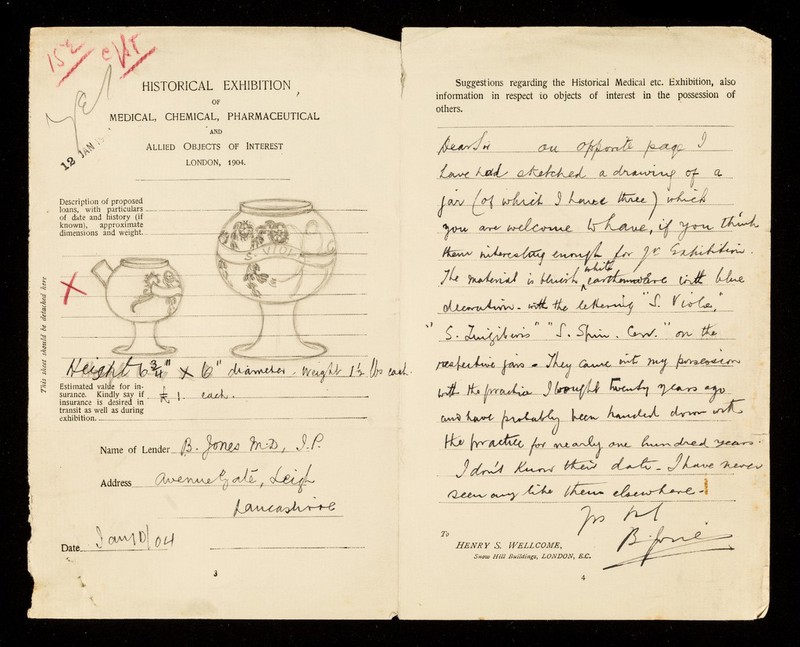 15E
12 JAN
HISTORICAL EXHIBITION,
OF
MEDICAL, CHEMICAL, PHARMACEUTICAL
AND
ALLIED OBJECTS OF INTEREST
LONDON, 1904.
Description of proposed
loans, with particulars
of date and history (if
known), approximate
dimensions and weight.
S. VIOL
This sheet should be detached here
Height 6 3/4" X 6" diameter - Weight 1 1/2 lbs each.
Estimated value for in-
surance. Kindly say if
insurance is desired in
transit as well as during
exhibition.
£1. each.
Name of Lender B. Jones M.D., J.P.
Address Avenue Gate, Leigh
Lancashire
Date Jan 10/04
3
Suggestions regarding the Historical Medical etc. Exhibition, also
information in respect to objects of interest in the possession of
others.
Dear Sir on opposite page I
have had sketched a drawing of a
jar (of which I have three) which
you are welcome to have, if you think
them interesting enough for yr Exhibition.
The material is bluish white earthenware with blue
decoration - with the lettering "S. Viole,"
"S. Zinziberis" "S. Spin. Cerv." on the
respective jars - They came into my possession
with the practice I bought twenty years ago
and have probably been handed down with
the practice for nearly one hundred years -
I don't know their date - I have never
seen any like them elsewhere -
B. Jones
To
HENRY S. WELLCOME,
Snow Hill Buildings, LONDON, E.C.
4